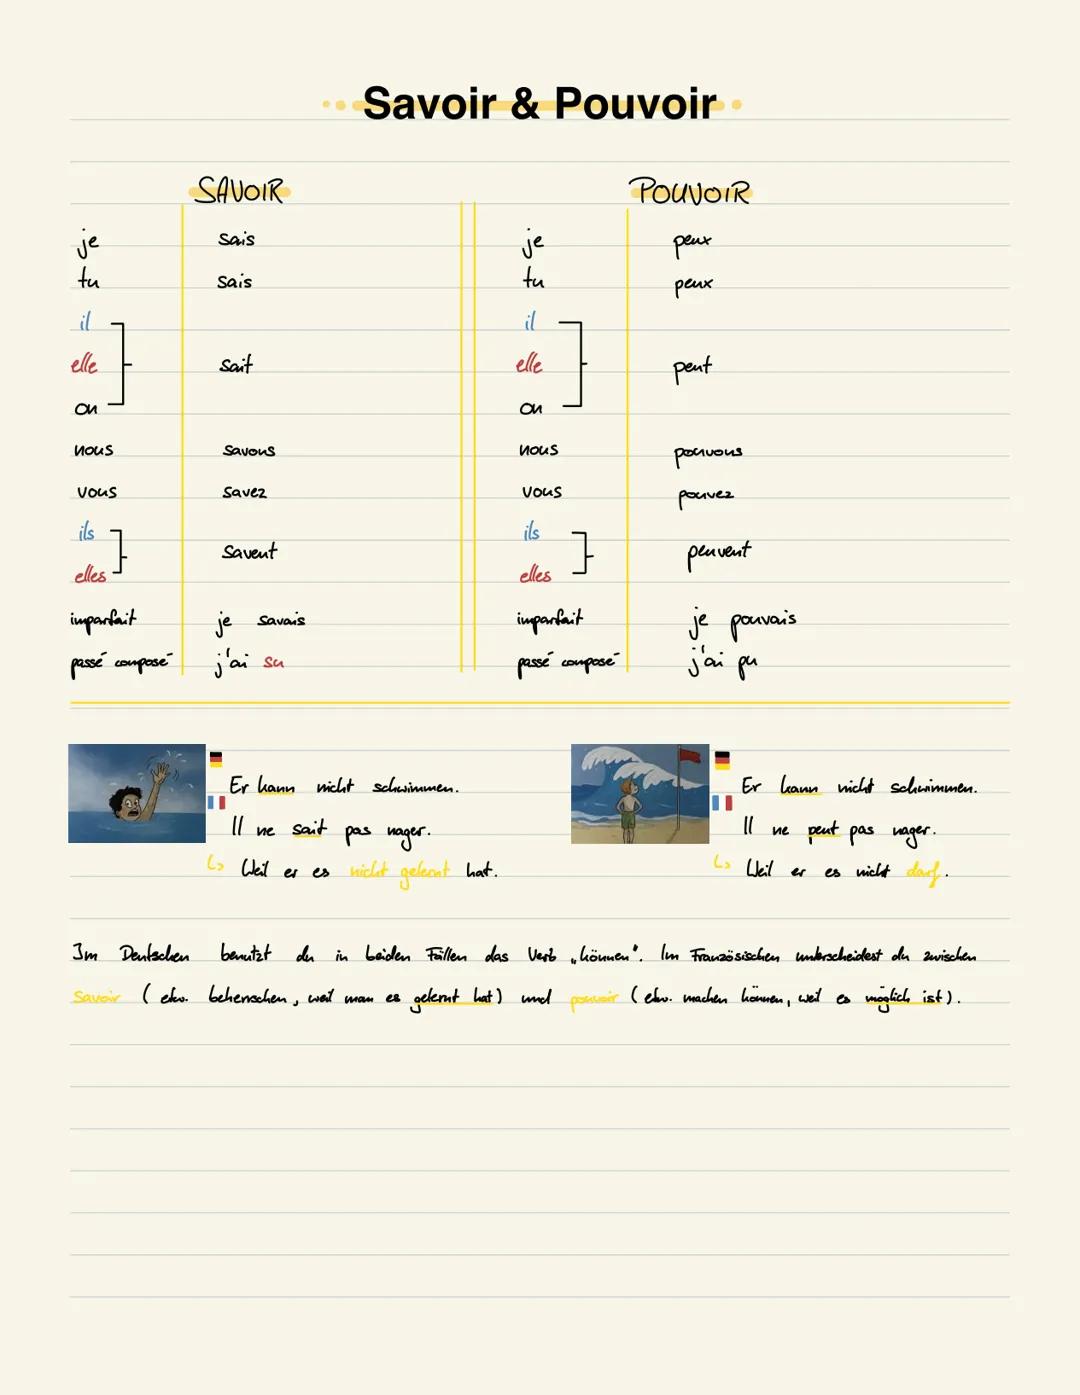 Savoir & Pouvoir
SAVOIR POUVOIR
je sais je peux
tu sais tu peux
il il
elle sait elle peut
on on
nous savons nous pouvons
vous savez vous pouvez
ils ils
savent peuvent
elles elles
imparfait je savais imparfait je pouvais
passé composé j'ai su passé composé j'ai pu
Er kann nicht schwimmen. Er kann nicht schwimmen.
Il ne sait pas nager. Il ne peut pas nager.
↳ Weil er es nicht gelernt hat. ↳ Weil er es nicht darf.
Im Deutschen benutzt du in beiden Fällen das Verb „können". Im Französischen unterscheidest du zwischen
savoir (etw. beherrschen, weil man es gelernt hat) und pouvoir (etw. machen können, weil es möglich ist).